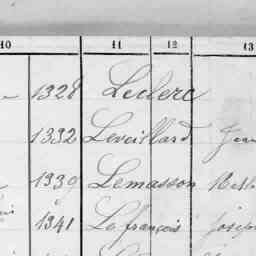 10 11 12 13
1328 Leclerc
1332 Leveillard Jean
1339 Lemasson
1341 Lefrançois Joseph